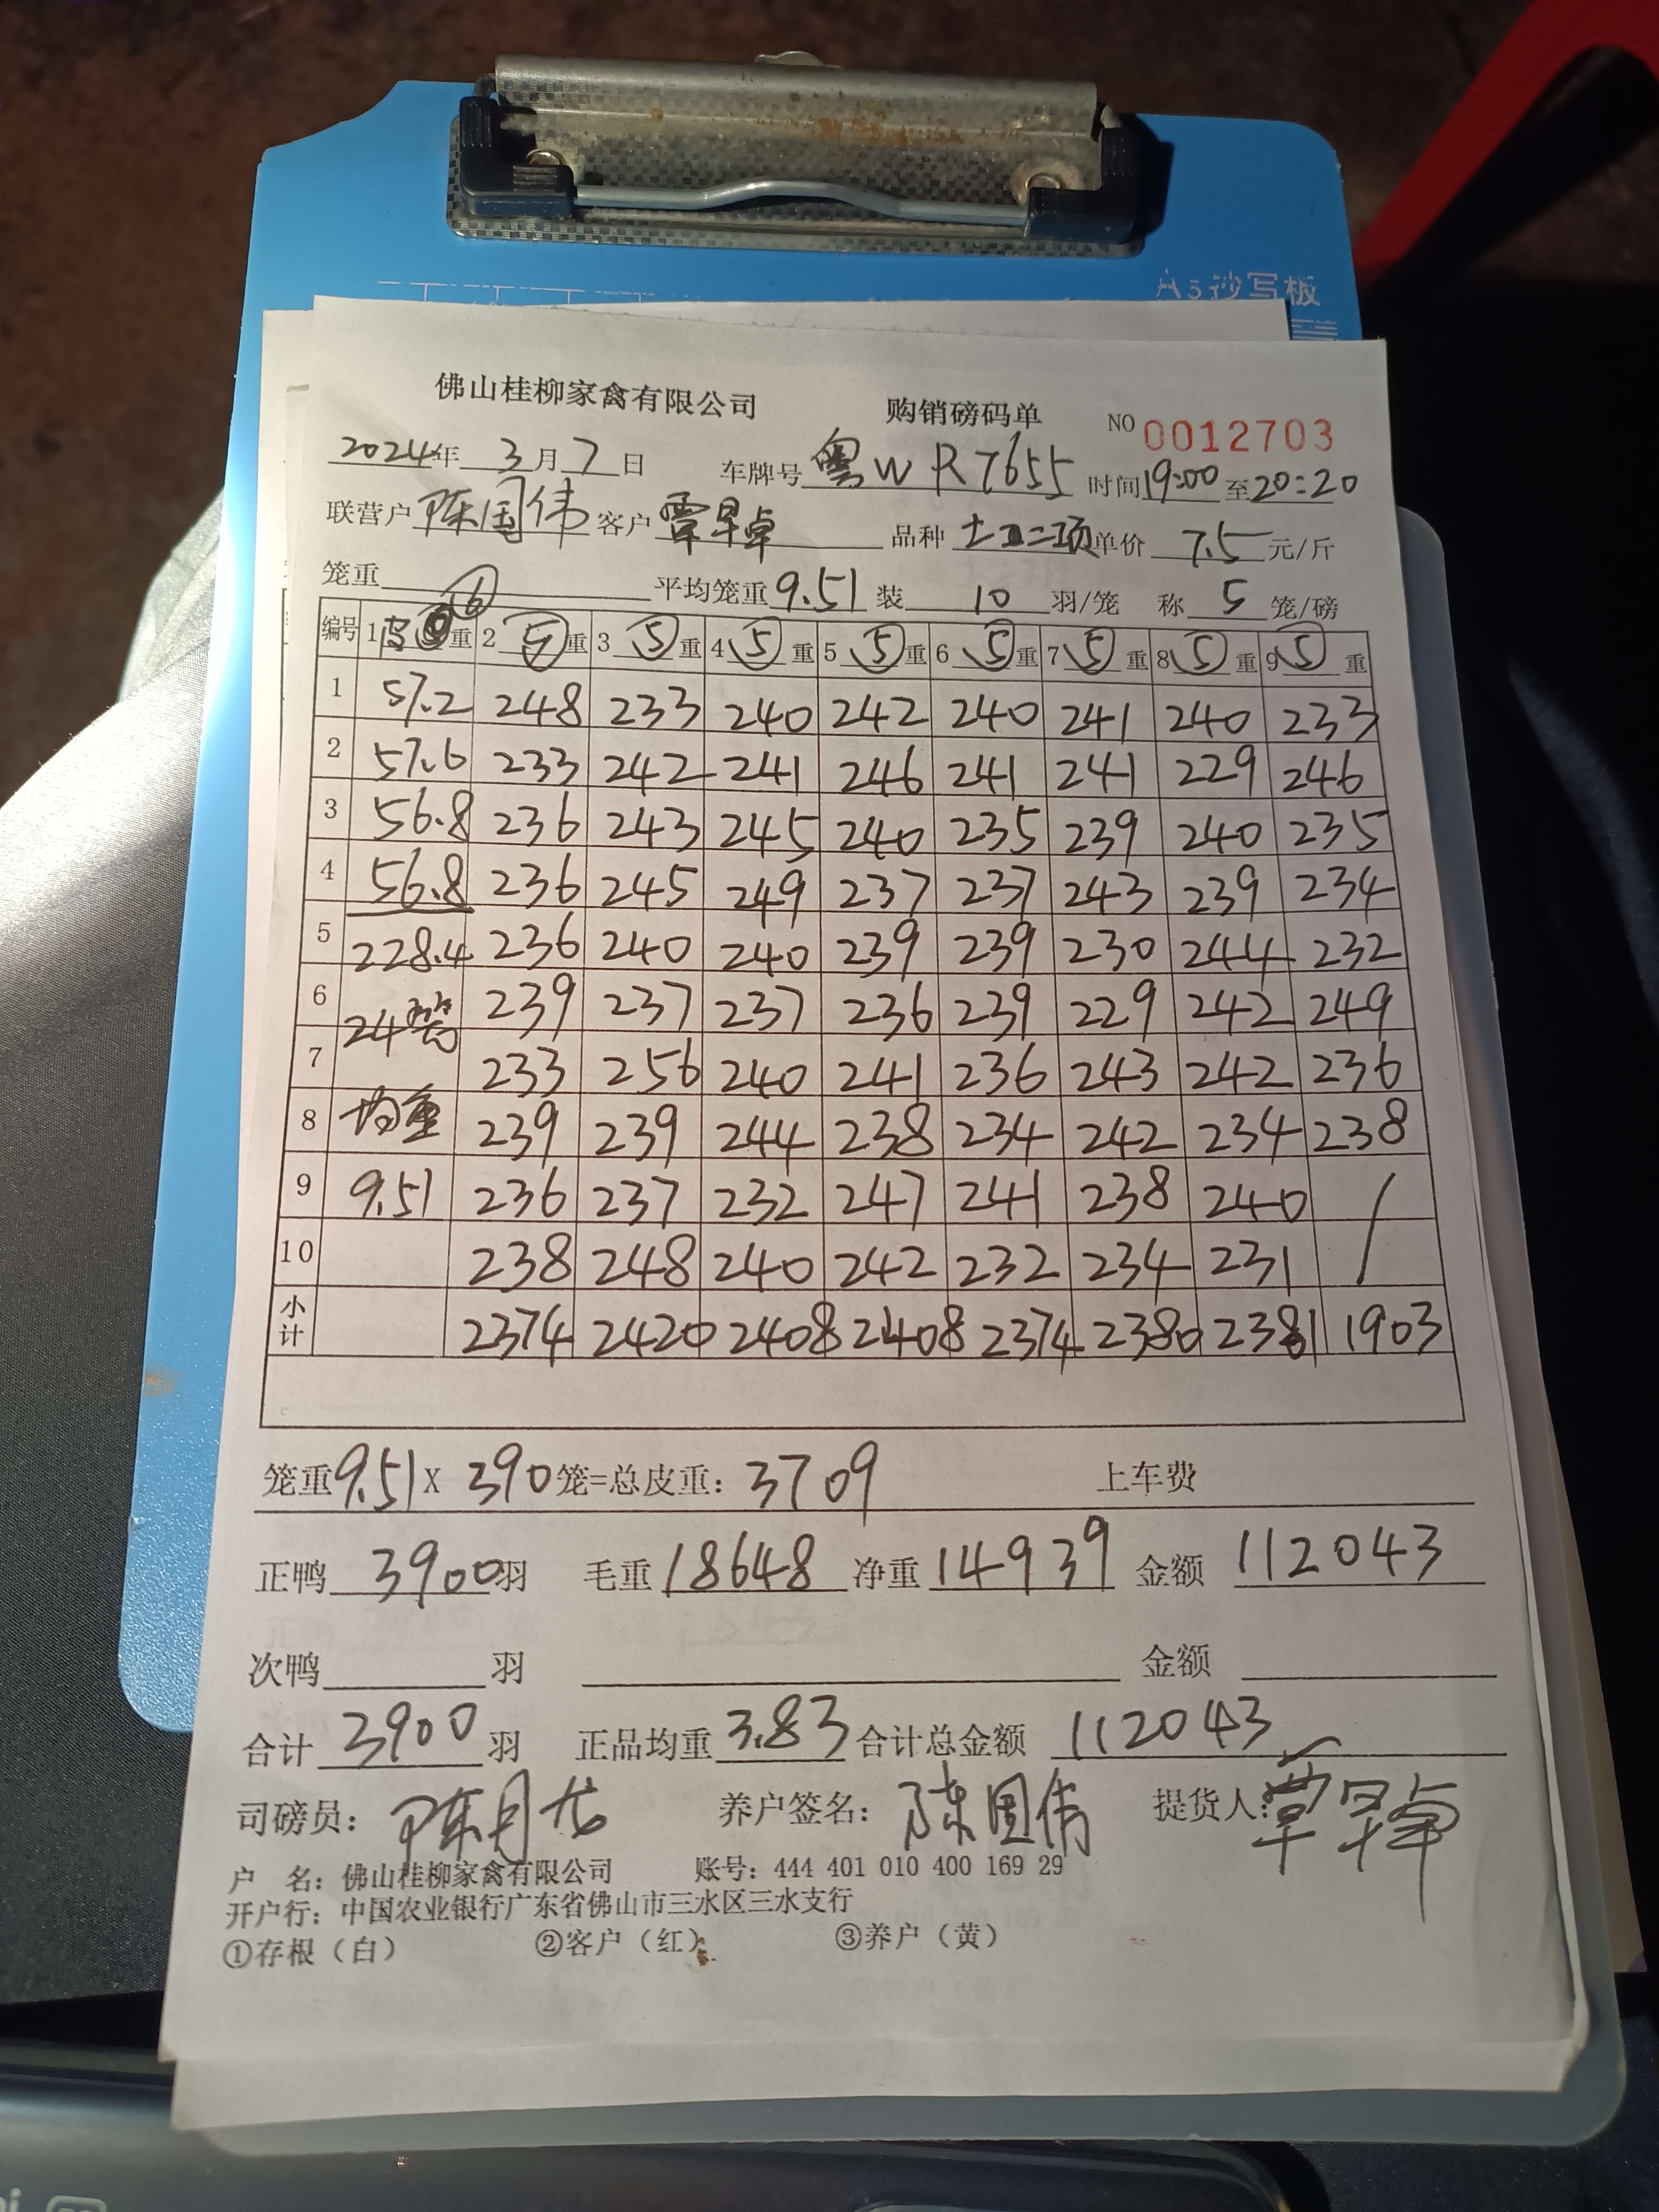 A5抄写板
佛山桂柳家禽有限公司 购销磅码单 NO 0012703
2024年 3月7日 车牌号 粤W R7655 时间19:00至20:20
联营户 陈国伟 客户 覃早卓 品种 二项 单价 7.5 元/斤
笼重 平均笼重 9.51 装 10 羽/笼 称 5 笼/磅
编号 1 6 重 2 5 重 3 5 重 4 5 重 5 5 重 6 5 重 7 5 重 8 5 重 9 5 重
1 57.2 248 233 240 242 240 241 240 233
2 57.6 233 242 241 246 241 241 229 246
3 56.8 236 243 245 240 235 239 240 235
4 56.8 236 245 249 237 237 243 239 234
5 228.4 236 240 240 239 239 230 244 232
6 24 239 237 237 236 239 229 242 249
7 233 256 240 241 236 243 242 236
8 均重 239 239 244 238 234 242 234 238
9 9.51 236 237 232 247 241 238 240 /
10 238 248 240 242 232 234 231
小计 2374 2420 2408 2408 2374 2380 2381 1903
笼重 9.51 X 390 笼=总皮重: 3709 上车费
正鸭 3900 羽 毛重 18648 净重 14939 金额 112043
次鸭 羽 金额
合计 3900 羽 正品均重 3.83 合计总金额 112043
司磅员: 陈月 养户签名: 陈国伟 提货人: 覃早卓
户 名: 佛山桂柳家禽有限公司 账号: 444 401 010 400 169 29
开户行: 中国农业银行广东省佛山市三水区三水支行
①存根（白） ②客户（红） ③养户（黄）